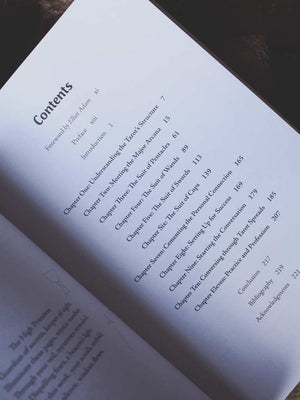 Contents
Foreword by Elliot Adam xi
Preface xiii
Introduction 1
Chapter One: Understanding the Tarot's Structure 7
Chapter Two: Meeting the Major Arcana 15
Chapter Three: The Suit of Pentacles 61
Chapter Four: The Suit of Wands 89
Chapter Five: The Suit of Swords 113
Chapter Six: The Suit of Cups 139
Chapter Seven: Cementing the Personal Connection 165
Chapter Eight: Setting Up for Success 169
Chapter Nine: Starting the Conversation 179
Chapter Ten: Conversing through Tarot Spreads 185
Chapter Eleven: Practice and Profession 207
Conclusion 217
Bibliography 219
Acknowledgments 221
The High Priestess
Guardian of secrets, keeper of